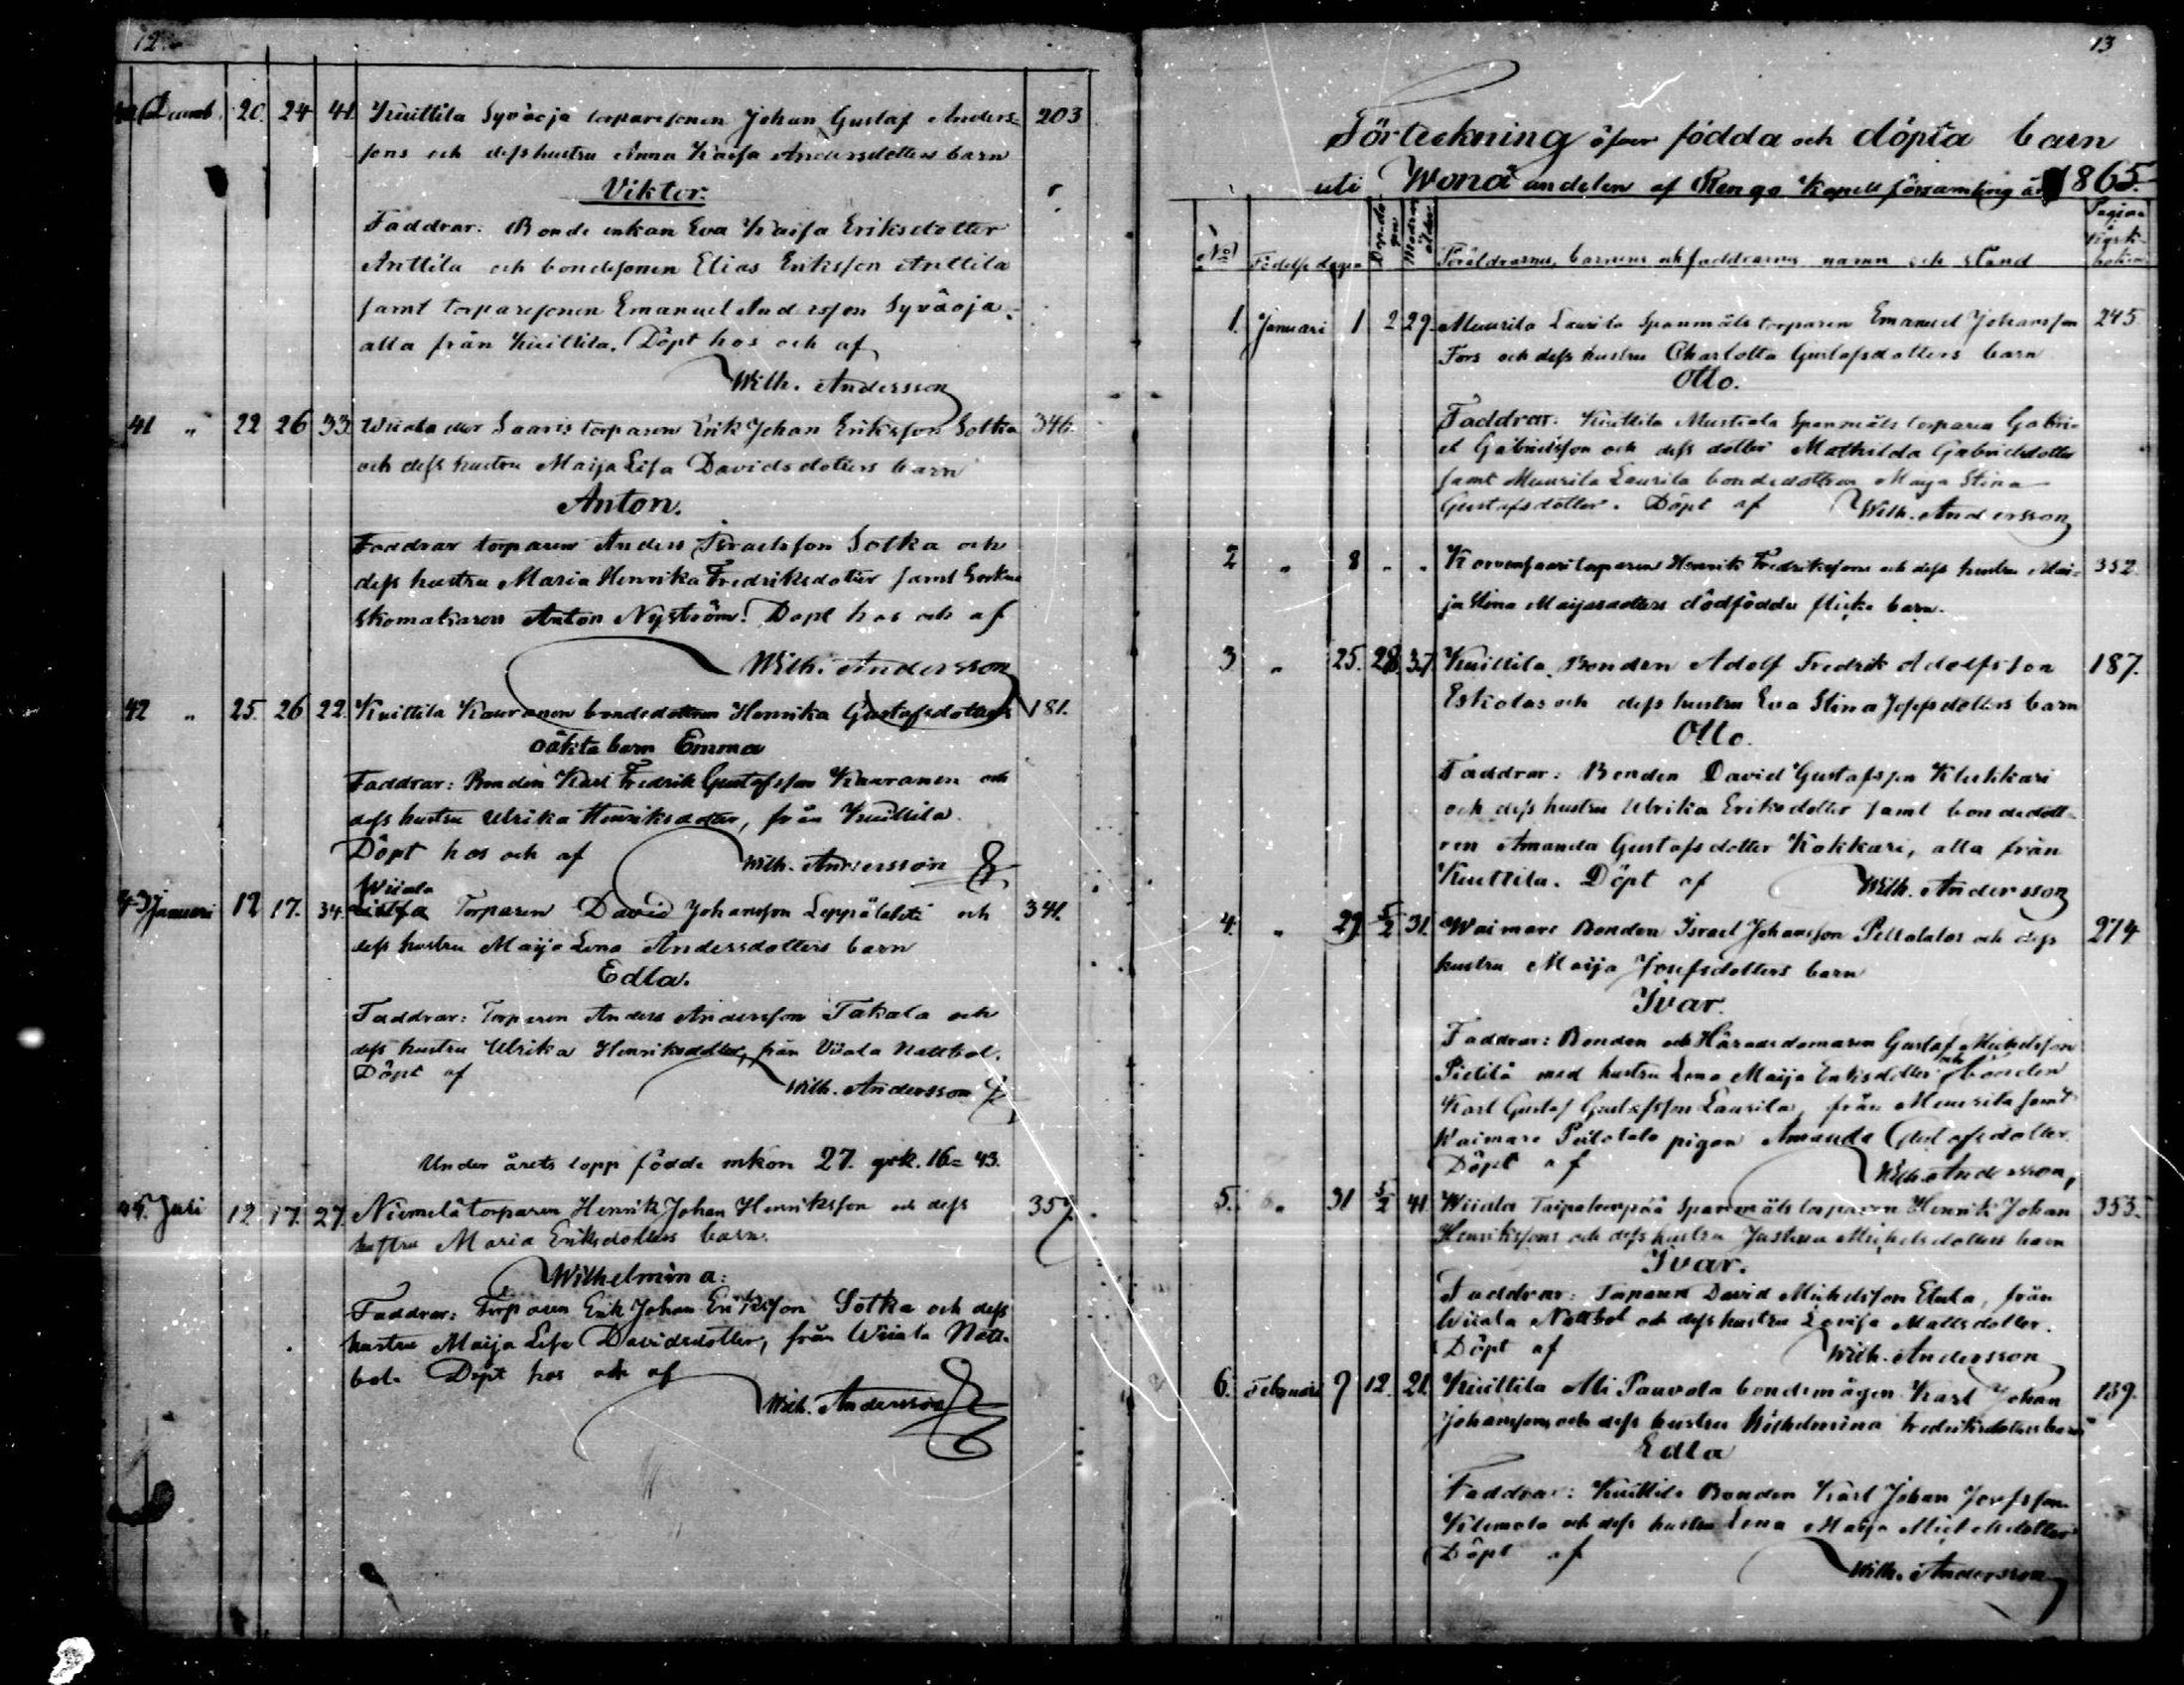 12
Decemb. 20. 24 41. Kuittila Syväoja torparesonen Johan Gustaf Anders- 203
sons och dess hustru Anna Kaisa Andersdotters barn
Viktor.
Faddrar: Bonde enkan Eva Kaisa Eriksdotter
Anttila och bondesonen Elias Eriksson Anttila
samt torparesonen Emanuel Andersson Syväoja.
alla från Kuittila. Döpt hos och af
Wilh. Andersson
41 " 22 26 33. Wiiala Saaris torparen Erik Johan Eriksson Sotka 346.
och dess hustru Maija Lisa Davidsdotters barn
Anton.
Faddrar torparen Anders Israelsson Sotka och
dess hustru Maria Henrika Fredriksdotter samt
skomakaren Anton Nyström. Döpt hos och af
Wilh. Andersson
42 " 25. 26 22. Kuittila Kauranen bondedottren Henrika Gustafsdotters 181.
oäkta barn Emma
Faddrar: Bonden Karl Fredrik Gustafsson Kauranen och
dess hustru Ulrika Henriksdotter, från Kuittila.
Döpt hos och af Wilh. Andersson
Wiiala
43 Januari 12 17. 34. Torparen David Johansson Leppälahti och 341.
dess hustru Maija Lena Andersdotters barn
Edla.
Faddrar: Torparen Anders Andersson Takala och
dess hustru Ulrika Henriksdotter, från Viiala Nattbol.
Döpt af
Wilh. Andersson
Under årets lopp födde mkön 27. qvk. 16 = 43.
Juli 12 17. 27. Niemelä torparen Henrik Johan Henriksson och dess 357.
hustru Maria Eriksdotters barn.
Wilhelmina:
Faddrar: Torparen Erik Johan Eriksson Sotka och dess
hustru Maija Lisa Davidsdotter, från Wiiala Natt-
bol. Döpt hos och af
Wilh. Andersson
13
Förteckning öfver födda och döpta barn
uti Wonå andelen af Rengo Kapell församling år 1865.
No Födelse dagen Döpda- gen Modrens ålder Föräldrarnes, barnens och faddrarnes namn och stånd Pagina Kyrk- boken
1. Januari 1 2 29. Muurila Laurila Spanmåls torparen Emanuel Johansson 245
Fors och dess hustru Charlotta Gustafsdotters barn
Otto.
Faddrar: Kuittila Mustiala Spanmåls torparen Gabri-
el Gabrielsson och dess dotter Mathilda Gabrielsdotter
samt Muurila Laurila bondedottren Maija Stina
Gustafsdotter. Döpt af Wilh. Andersson
2 " 8 " " Korvensaari torparen Henrik Fredrikssons och dess hustru Mai- 352.
ja Stina Maijasdotters dödfödda flicke barn.
3 " 25. 28. 37. Kuittila Bonden Adolf Fredrik Adolfsson 187.
Eskolas och dess hustru Eva Stina Josefsdotters barn
Otto.
Faddrar: Bonden David Gustafsson Klukkari
och dess hustru Ulrika Eriksdotter samt bondedott-
ren Amanda Gustafsdotter Kokkari, alla från
Kuittila. Döpt af Wilh. Andersson
4. " 29. 5/2 31. Waimare Bonden Israel Johansson Peltotalos och dess 274
hustru Maija Josefsdotters barn
Ivar.
Faddrar: Bonden och Häradsdomaren Gustaf Michelsson
Pietilä med hustru Lena Maija Eriksdotter och bonden
Karl Gustaf Gustafsson Laurila, från Muurila samt
Waimare Peltotalo pigan Amanda Gustafsdotter.
Döpt af Wilh. Andersson,
5. " 31 5/2 41. Wiiala Taipaleenpää Spanmåls torparen Henrik Johan 353.
Henrikssons och dess hustru Justina Michelsdotters barn
Ivar.
Faddrar: Torparen David Michelsson Etula, från
Wiiala Nattbol och dess hustru Lovisa Mattsdotter.
Döpt af Wilh. Andersson
6. Februari 7 12. 21. Kuittila Ali Pauvola bondemågen Karl Johan 189.
Johanssons och dess hustru Wilhelmina Fredriksdotters barn
Edla
Faddrar: Kuittila Bonden Karl Johan Josefsson
Kilemola och dess hustru Lena Maija Michelsdotter
Döpt af
Wilh. Andersson